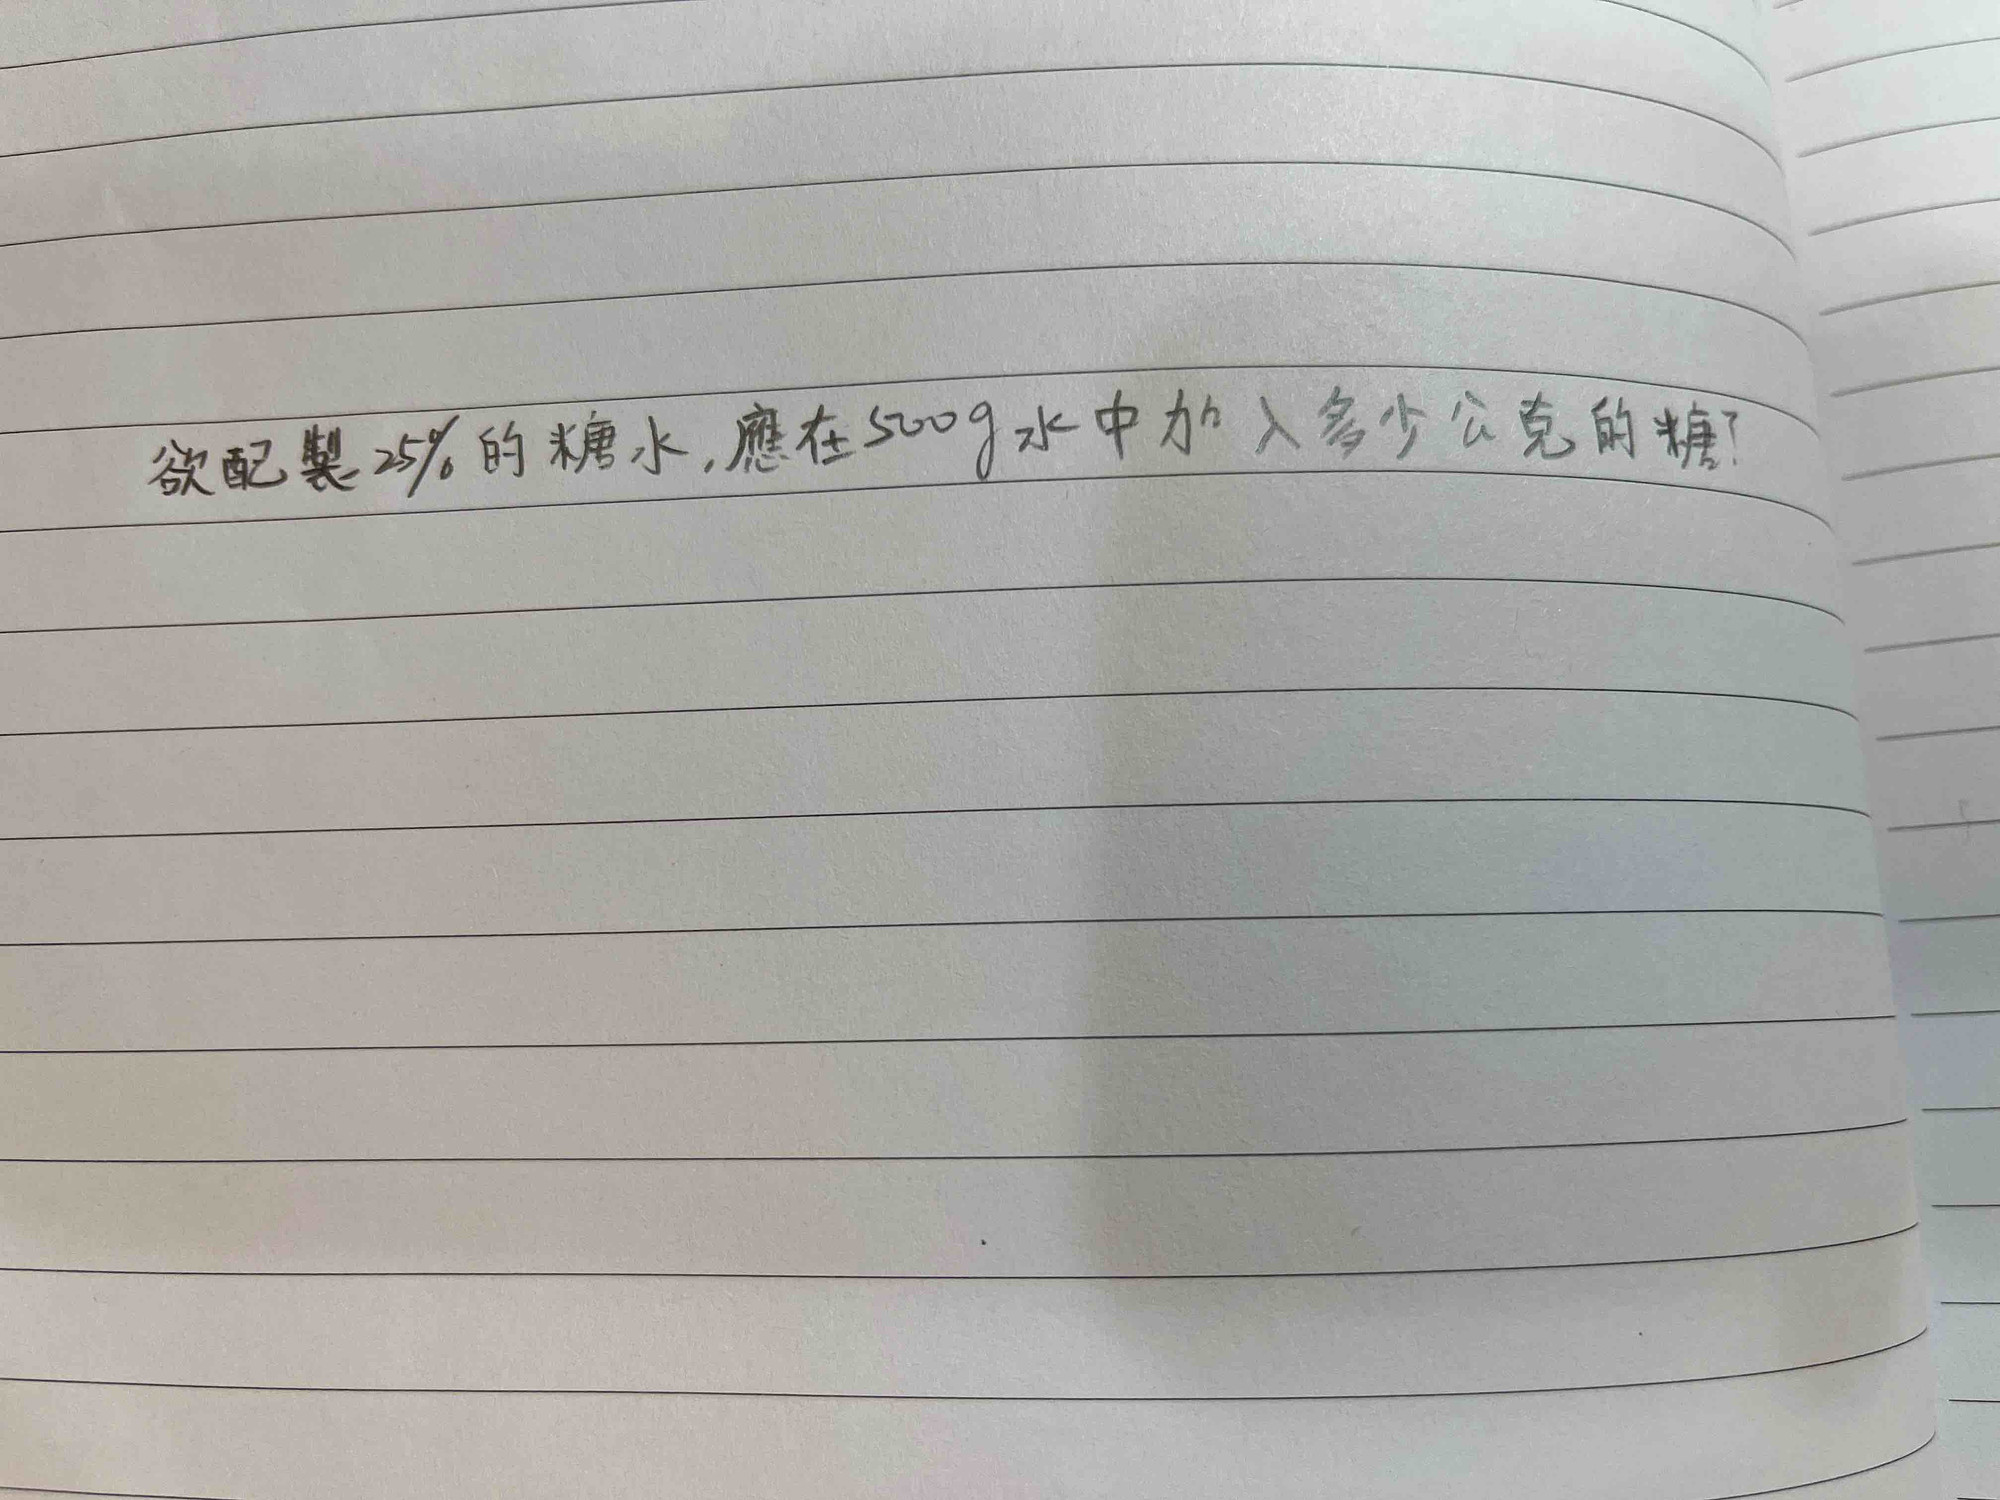 欲配製25%的糖水,應在500g水中加入多少公克的糖?